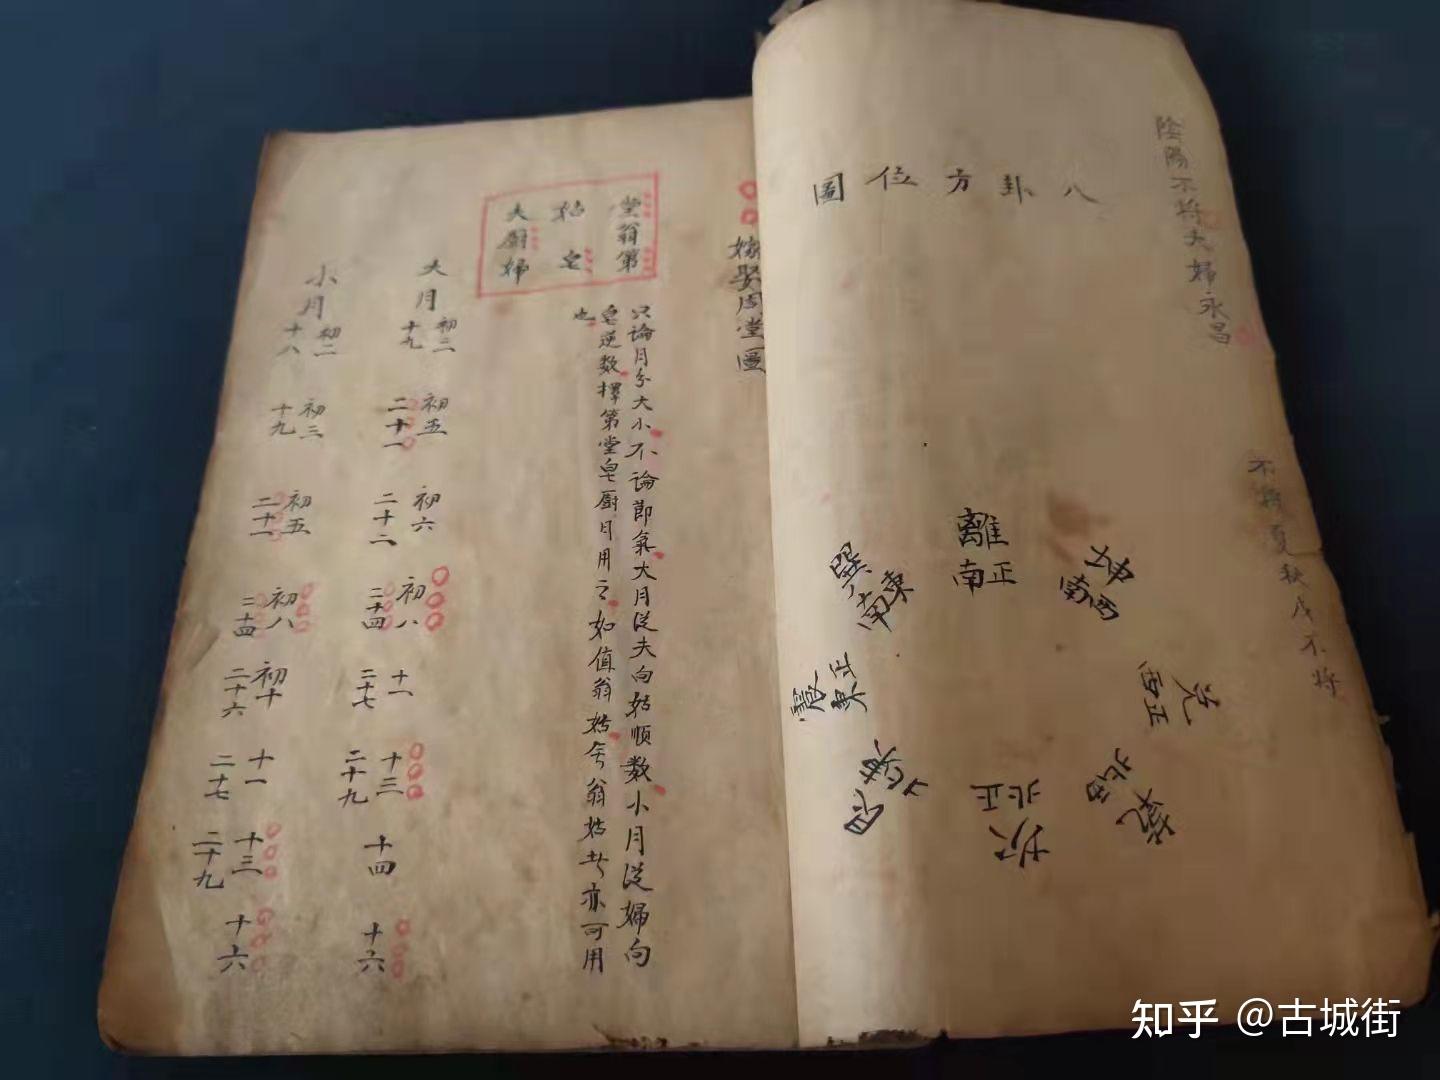 陰陽不將夫婦永昌
不將夏秋戊不將
八卦方位圖
離
正南
坤
西南
兌
正西
乾
西北
坎
正北
艮
東北
震
正東
巽
東南
嫁娶周堂圖
堂翁第
姑 皂
夫廚婦
只論月分大小不論節氣大月從夫向姑順數小月從婦向
皂逆數擇第堂皂廚日用之如值翁姑無翁姑者亦可用
也
大月
初三
十九
初五
二十一
初六
二十二
初八
二十四
十一
二十七
十三
二十九
十四
十六
小月
初二
十八
初三
十九
初五
二十一
初八
二十四
初十
二十六
十一
二十七
十三
二十九
十六
知乎 @古城街